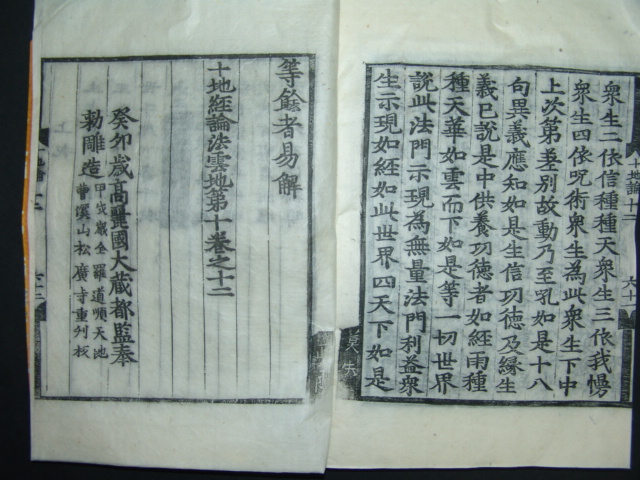 衆生二依信種種天衆生三依我慢
衆生四依呪術衆生為此衆生下中
上次第差別故動乃至吼如是十八
句異義應知如是生信功德及緣生
義已說是中供養功德者如經雨種
種天華如雲而下如是等一切世界
說此法門示現為無量法門利益衆
生示現如經如此世界四天下如是
等餘者易解
十地經論法雲地第十卷之十二
癸卯歲高麗國大藏都監奉
勑雕造
甲戌歲全羅道順天地
曹溪山松廣寺重刊板